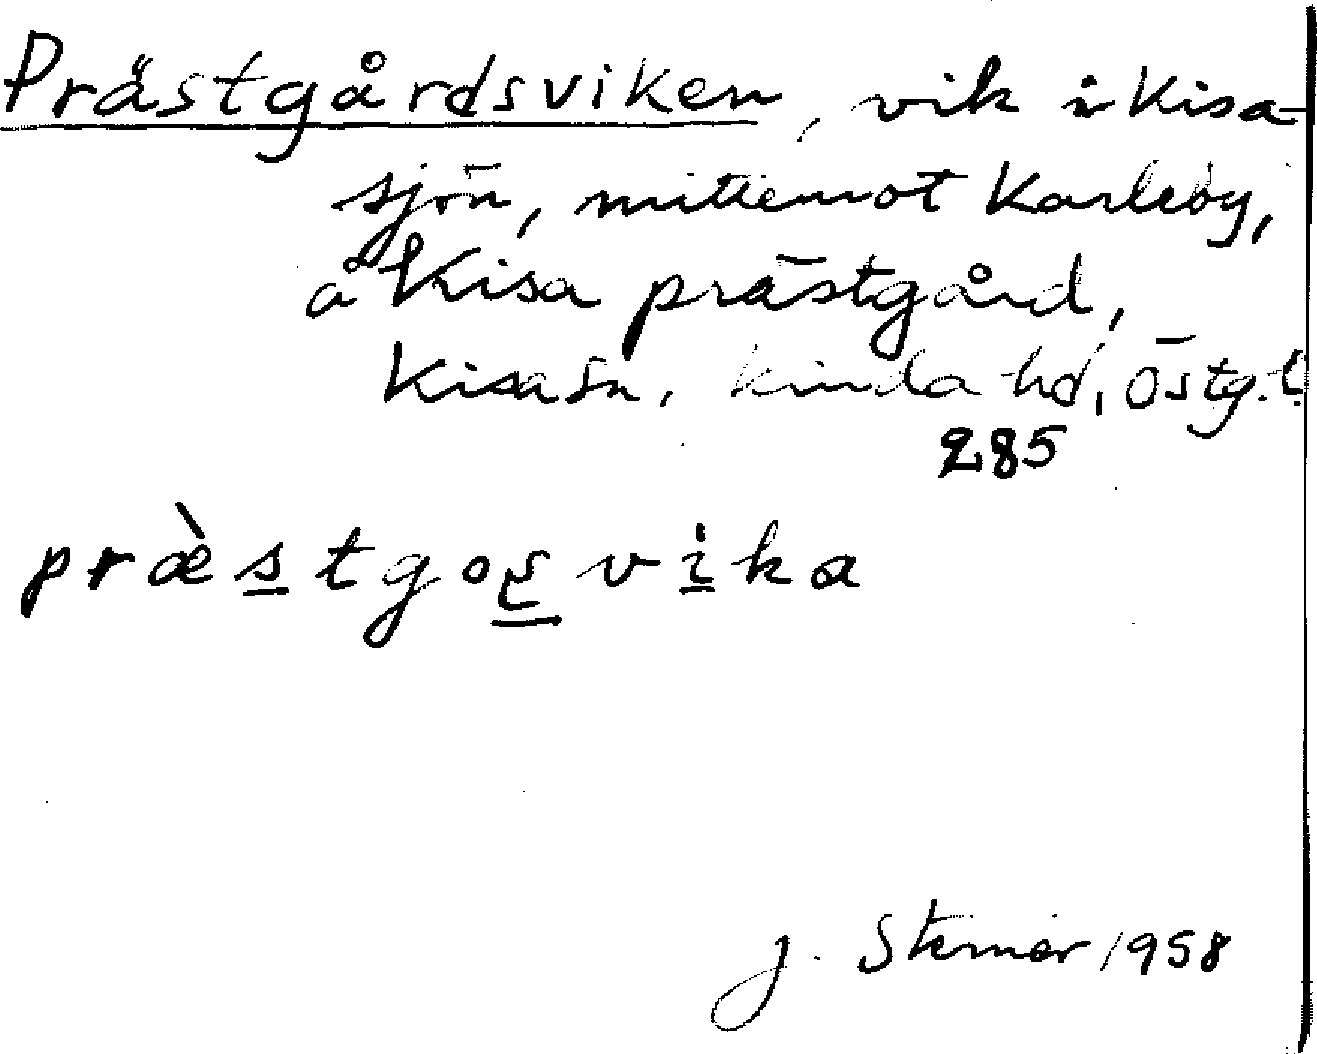 Prästgårdsviken, vik i Kisa-
sjön, mittemot Karleby,
å Kisa prästgård,
Kisa sn, Kinda hd, Östg.l.
285
præ̀stgoʂvika
J. Sterner 1958